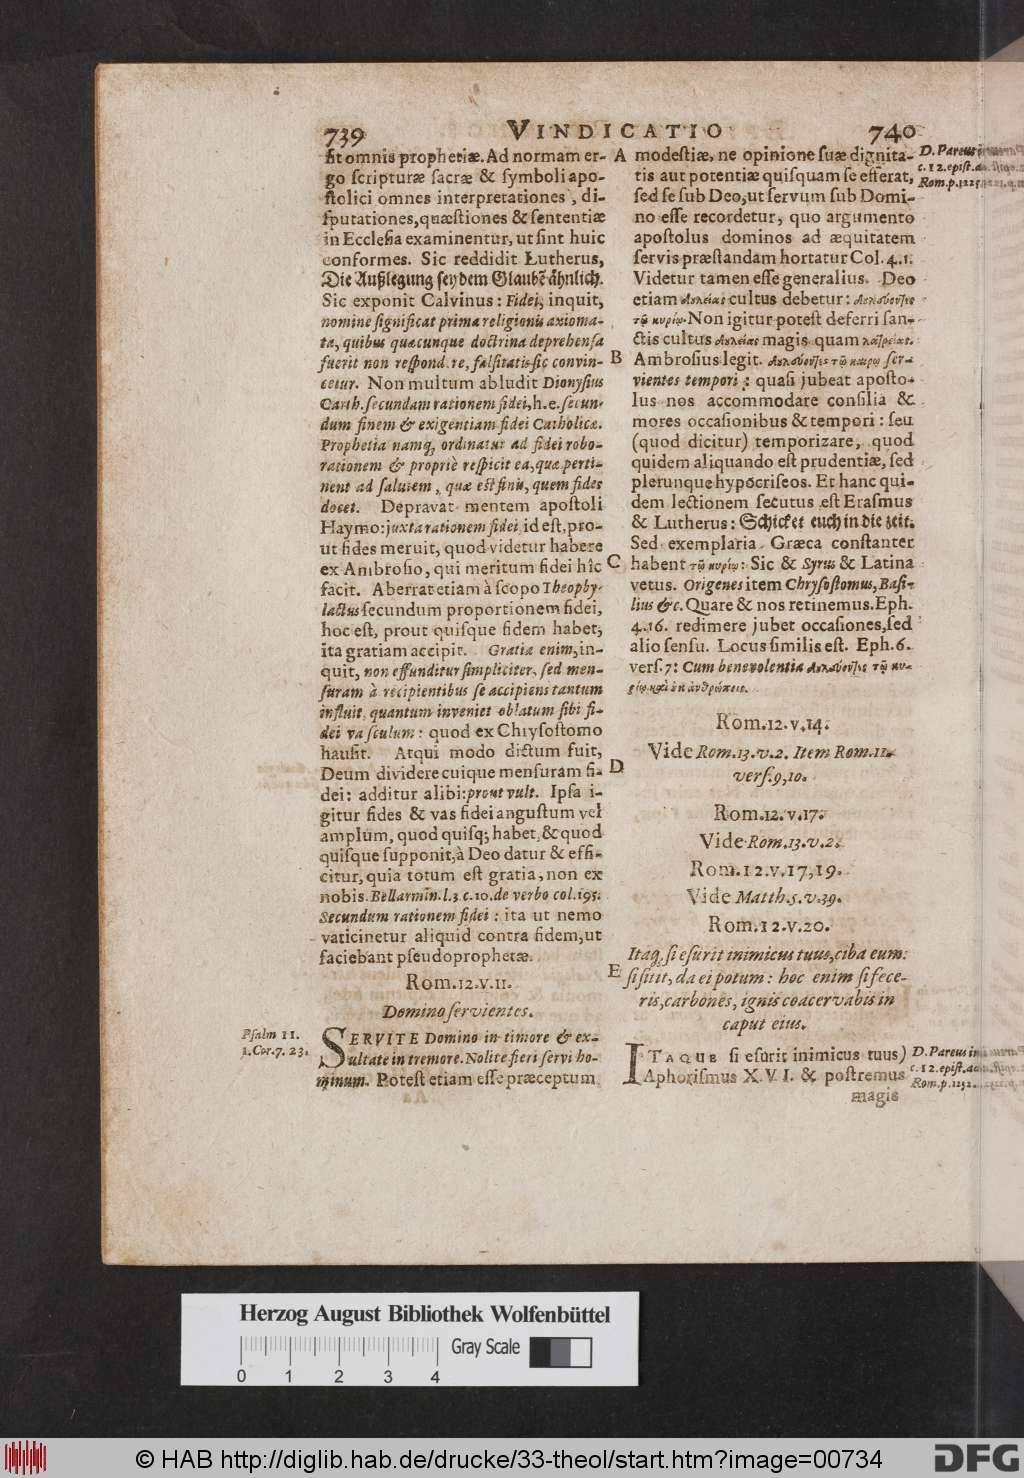 739
VINDICATIO
740
ſit omnis prophetiæ. Ad normam er-
go ſcripturæ ſacræ & ſymboli apo-
ſtolici omnes interpretationes, di-
ſputationes, quæſtiones & ſententiæ
in Eccleſia examinentur, ut ſint huic
conformes. Sic reddidit Lutherus,
Die Außlegung ſey dem Glaubẽ ähnlich.
Sic exponit Calvinus: Fidei, inquit,
nomine ſignificat prima religionis axioma-
ta, quibus quæcunque doctrina deprehenſa
fuerit non reſpondere, falſitatis ſic convin-
cetur. Non multum abludit Dionyſius
Carth. ſecundam rationem fidei, h.e. ſecun-
dum finem & exigentiam fidei Catholicæ.
Prophetia namq; ordinatur ad fidei robo-
rationem & propriè reſpicit ea, quæ perti-
nent ad ſalutem, quæ eſt finis, quem fides
docet. Depravat mentem apoſtoli
Haymo: juxta rationem fidei, id eſt, pro-
ut fides meruit, quod videtur habere
ex Ambroſio, qui meritum fidei hîc
facit. Aberrat etiam à ſcopo Theophy-
lactus ſecundum proportionem fidei,
hoc eſt, prout quiſque fidem habet,
ita gratiam accipit. Gratia enim, in-
quit, non effunditur ſimpliciter, ſed men-
ſuram à recipientibus ſe accipiens tantum
influit, quantum inveniet oblatum ſibi fi-
dei vaſculum: quod ex Chryſoſtomo
hauſit. Atqui modo dictum fuit,
Deum dividere cuique menſuram fi-
dei: additur alibi: prout vult. Ipſa i-
gitur fides & vas fidei anguſtum vel
amplum, quod quiſq; habet, & quod
quiſque ſupponit, à Deo datur & effi-
citur, quia totum eſt gratia, non ex
nobis. Bellarmin. l.3 c.10. de verbo col. 195.
Secundum rationem fidei: ita ut nemo
vaticinetur aliquid contra fidem, ut
faciebant pſeudoprophetæ.
Rom. 12. v. 11.
Domino ſervientes.
Pſalm 11.
1. Cor. 7. 23.
SERVITE Domino in timore & ex-
ultate in tremore. Nolite fieri ſervi ho-
minum. Poteſt etiam eſſe præceptum
A
B
C
D
E
modeſtiæ, ne opinione ſuæ dignita-
tis aut potentiæ quiſquam ſe efferat,
ſed ſe ſub Deo, ut ſervum ſub Domi-
no eſſe recordetur, quo argumento
apoſtolus dominos ad æquitatem
ſervis præſtandam hortatur Col. 4. 1.
Videtur tamen eſſe generalius. Deo
etiam δουλείας cultus debetur: δουλεύοντες
τῷ κυρίῳ. Non igitur poteſt deferri ſan-
ctis cultus δουλείας magis quam λατρείας.
Ambroſius legit. δουλεύοντες τῷ καιρῷ ſer-
vientes tempori: quaſi jubeat apoſto-
lus nos accommodare conſilia &
mores occaſionibus & tempori: ſeu
(quod dicitur) temporizare, quod
quidem aliquando eſt prudentiæ, ſed
plerunque hypocriſeos. Et hanc qui-
dem lectionem ſecutus eſt Eraſmus
& Lutherus: Schicket euch in die zeit.
Sed exemplaria Græca conſtanter
habent τῷ κυρίῳ: Sic & Syrus & Latina
vetus. Origenes item Chryſoſtomus, Baſi-
lius &c. Quare & nos retinemus. Eph.
4. 16. redimere jubet occaſiones, ſed
alio ſenſu. Locus ſimilis eſt. Eph. 6.
verſ. 7: Cum benevolentia δουλεύοντες τῷ κυ-
ρίῳ καὶ οὐκ ἀνθρώποις.
Rom. 12. v. 14.
Vide Rom. 13. v. 2. Item Rom. 11.
verſ. 9, 10.
Rom. 12. v. 17.
Vide Rom. 13. v. 2.
Rom. 12. v. 17, 19.
Vide Matth. 5. v. 39.
Rom. 12. v. 20.
Itaq; ſi eſurit inimicus tuus, ciba eum:
ſi ſitit, da ei potum: hoc enim ſi fece-
ris, carbones, ignis coacervabis in
caput eius.
ITAQUE ſi eſurit inimicus tuus)
Aphoriſmus XVI. & poſtremus
magis
D. Pareus in
c. 12. epiſt. ad
Rom. p. 1225
D. Pareus in
c. 12. epiſt. ad
Rom. p. 1252.
Herzog August Bibliothek Wolfenbüttel
Gray Scale
0 1 2 3 4
© HAB http://diglib.hab.de/drucke/33-theol/start.htm?image=00734
DFG